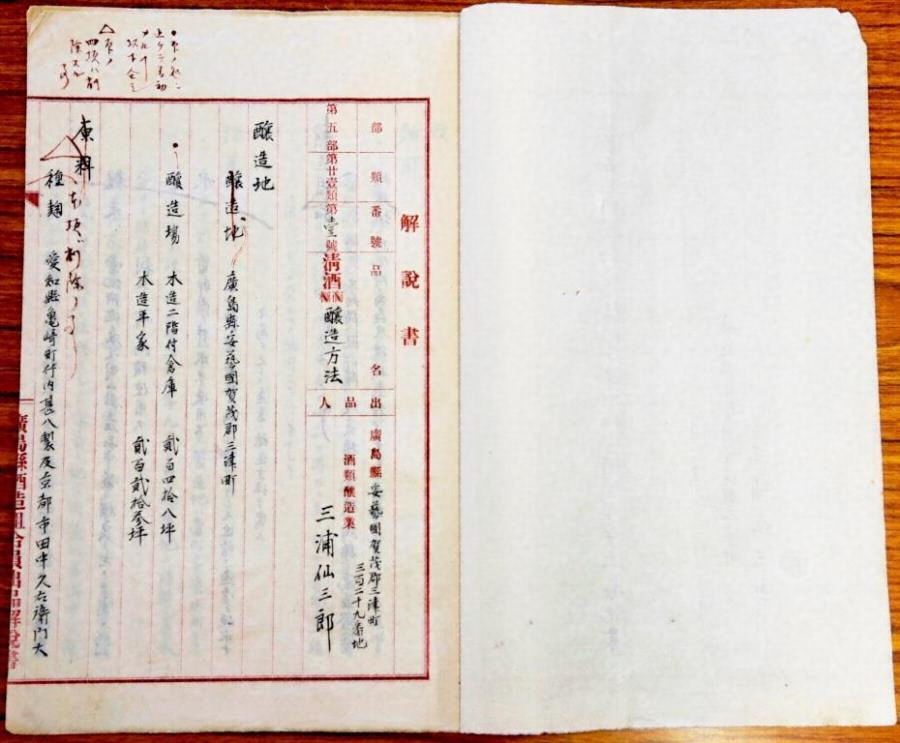 解說書
部類番號品名出品人
第五部第廿壹類第壹號淸酒醸造方法
廣島縣安藝國賀茂郡三津町
三百二十九番地
酒類釀造業
三浦仙三郎
釀造地
釀造地 廣島縣安藝國賀茂郡三津町
釀造場 木造二階付倉庫 貳百四拾八坪
木造平家 貳百貳拾叁坪
原料
本項削除
種麹 愛知縣亀崎町竹内甚八製及京都市田中久右衛門大
廣島縣酒造組合員出品解說書
四項ハ削
除スル